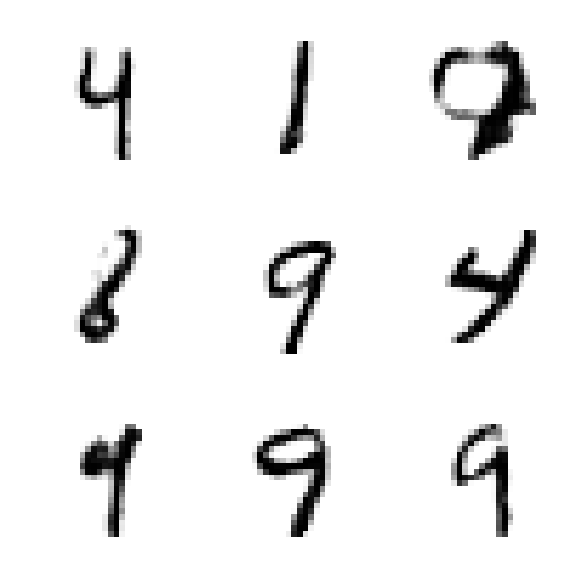 4 1 9
8 9 4
9 9 9